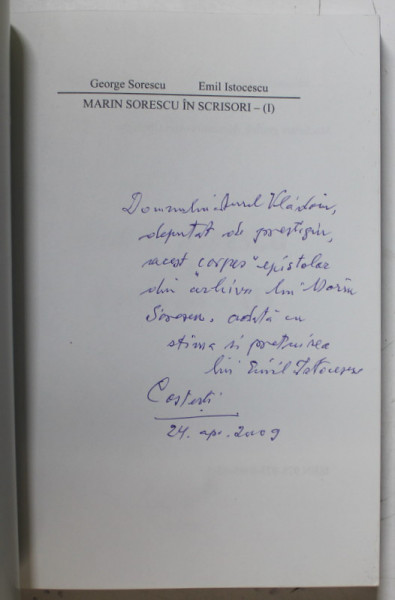 George Sorescu Emil Istocescu
MARIN SORESCU ÎN SCRISORI – (I)
Domnului Aurel Vlădoiu,
deputat de prestigiu,
acest "corpus" epistolar
din "arhiva lui Marin
Sorescu, odată cu
stima și prețuirea
lui Emil Istocescu
Costești
24. apr. 2009